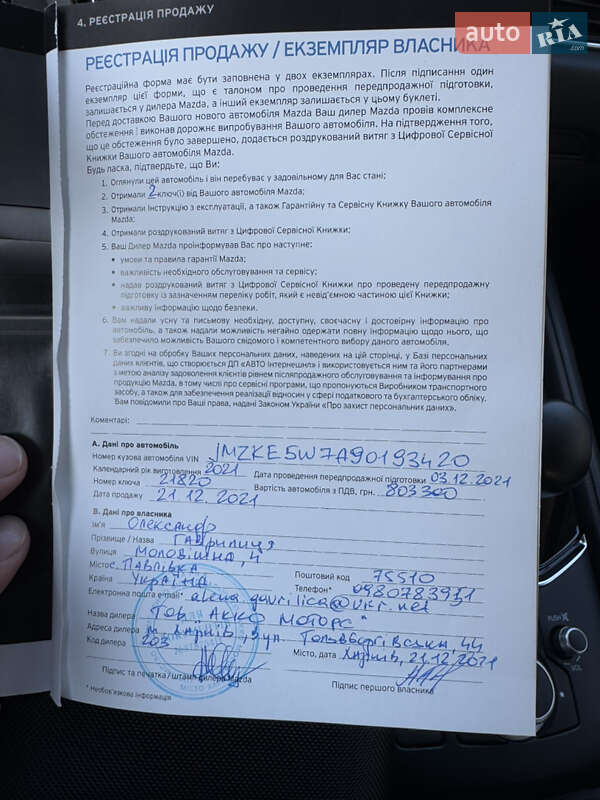 4. РЕЄСТРАЦІЯ ПРОДАЖУ
auto RIA .com
РЕЄСТРАЦІЯ ПРОДАЖУ / ЕКЗЕМПЛЯР ВЛАСНИКА
Реєстраційна форма має бути заповнена у двох екземплярах. Після підписання один
екземпляр цієї форми, що є талоном про проведення передпродажної підготовки,
залишається у дилера Mazda, а інший екземпляр залишається у цьому буклеті.
Перед доставкою Вашого нового автомобіля Mazda Ваш дилер Mazda провів комплексне
обстеження і виконав дорожнє випробування Вашого автомобіля. На підтвердження того,
що це обстеження було завершено, додається роздрукований витяг з Цифрової Сервісної
Книжки Вашого автомобіля Mazda.
Будь ласка, підтвердьте, що Ви:
1. Оглянули цей автомобіль і він перебуває у задовільному для Вас стані;
2. Отримали 2 ключ(і) від Вашого автомобіля Mazda;
3. Отримали Інструкцію з експлуатації, а також Гарантійну та Сервісну Книжку Вашого автомобіля
Mazda;
4. Отримали роздрукований витяг з Цифрової Сервісної Книжки;
5. Ваш Дилер Mazda проінформував Вас про наступне:
• умови та правила гарантії Mazda;
• важливість необхідного обслуговування та сервісу;
• надав роздрукований витяг з Цифрової Сервісної Книжки про проведену передпродажну
підготовку із зазначенням переліку робіт, який є невід'ємною частиною цієї Книжки;
• важливу інформацію щодо безпеки.
6. Вам надали усну та письмову необхідну, доступну, своєчасну і достовірну інформацію про
автомобіль, а також надали можливість негайно одержати повну інформацію щодо нього, що
забезпечило можливість Вашого свідомого і компетентного вибору даного автомобіля.
7. Ви згодні на обробку Ваших персональних даних, наведених на цій сторінці, у Базі персональних
даних клієнтів, що створюється ДП «АВТО Інтернешнл» і використовується ним та його партнерами
з метою аналізу задоволення клієнтів рівнем післяпродажного обслуговування та інформування про
продукцію Mazda, в тому числі про сервісні програми, що пропонуються Виробником транспортного
засобу, а також для забезпечення реалізації відносин у сфері податкового та бухгалтерського обліку.
Вам повідомили про Ваші права, надані Законом України «Про захист персональних даних».
Коментарі:
А. Дані про автомобіль
Номер кузова автомобіля VIN JMZKE5W7A90193420
Календарний рік виготовлення 2021 Дата проведення передпродажної підготовки 03.12.2021
Номер ключа 21820 Вартість автомобіля з ПДВ, грн. 803300
Дата продажу 21.12.2021
В. Дані про власника
Ім'я Олександр
Прізвище / Назва Гаврилиця
Вулиця Моловішна, 4
Місто с. Павлівка Поштовий код 75510
Країна Україна Телефон* 0980783971
Електронна пошта e-mail* alena.gavrilica@ukr.net
Назва дилера ТОВ "АККО МОТОРС"
Адреса дилера м. Харків, вул.
Код дилера 203 Місто, дата Харків, 21.12.2021
Підпис та печатка / штамп дилера Mazda Підпис першого власника
* Необов'язкова інформація
PUSH
VOL